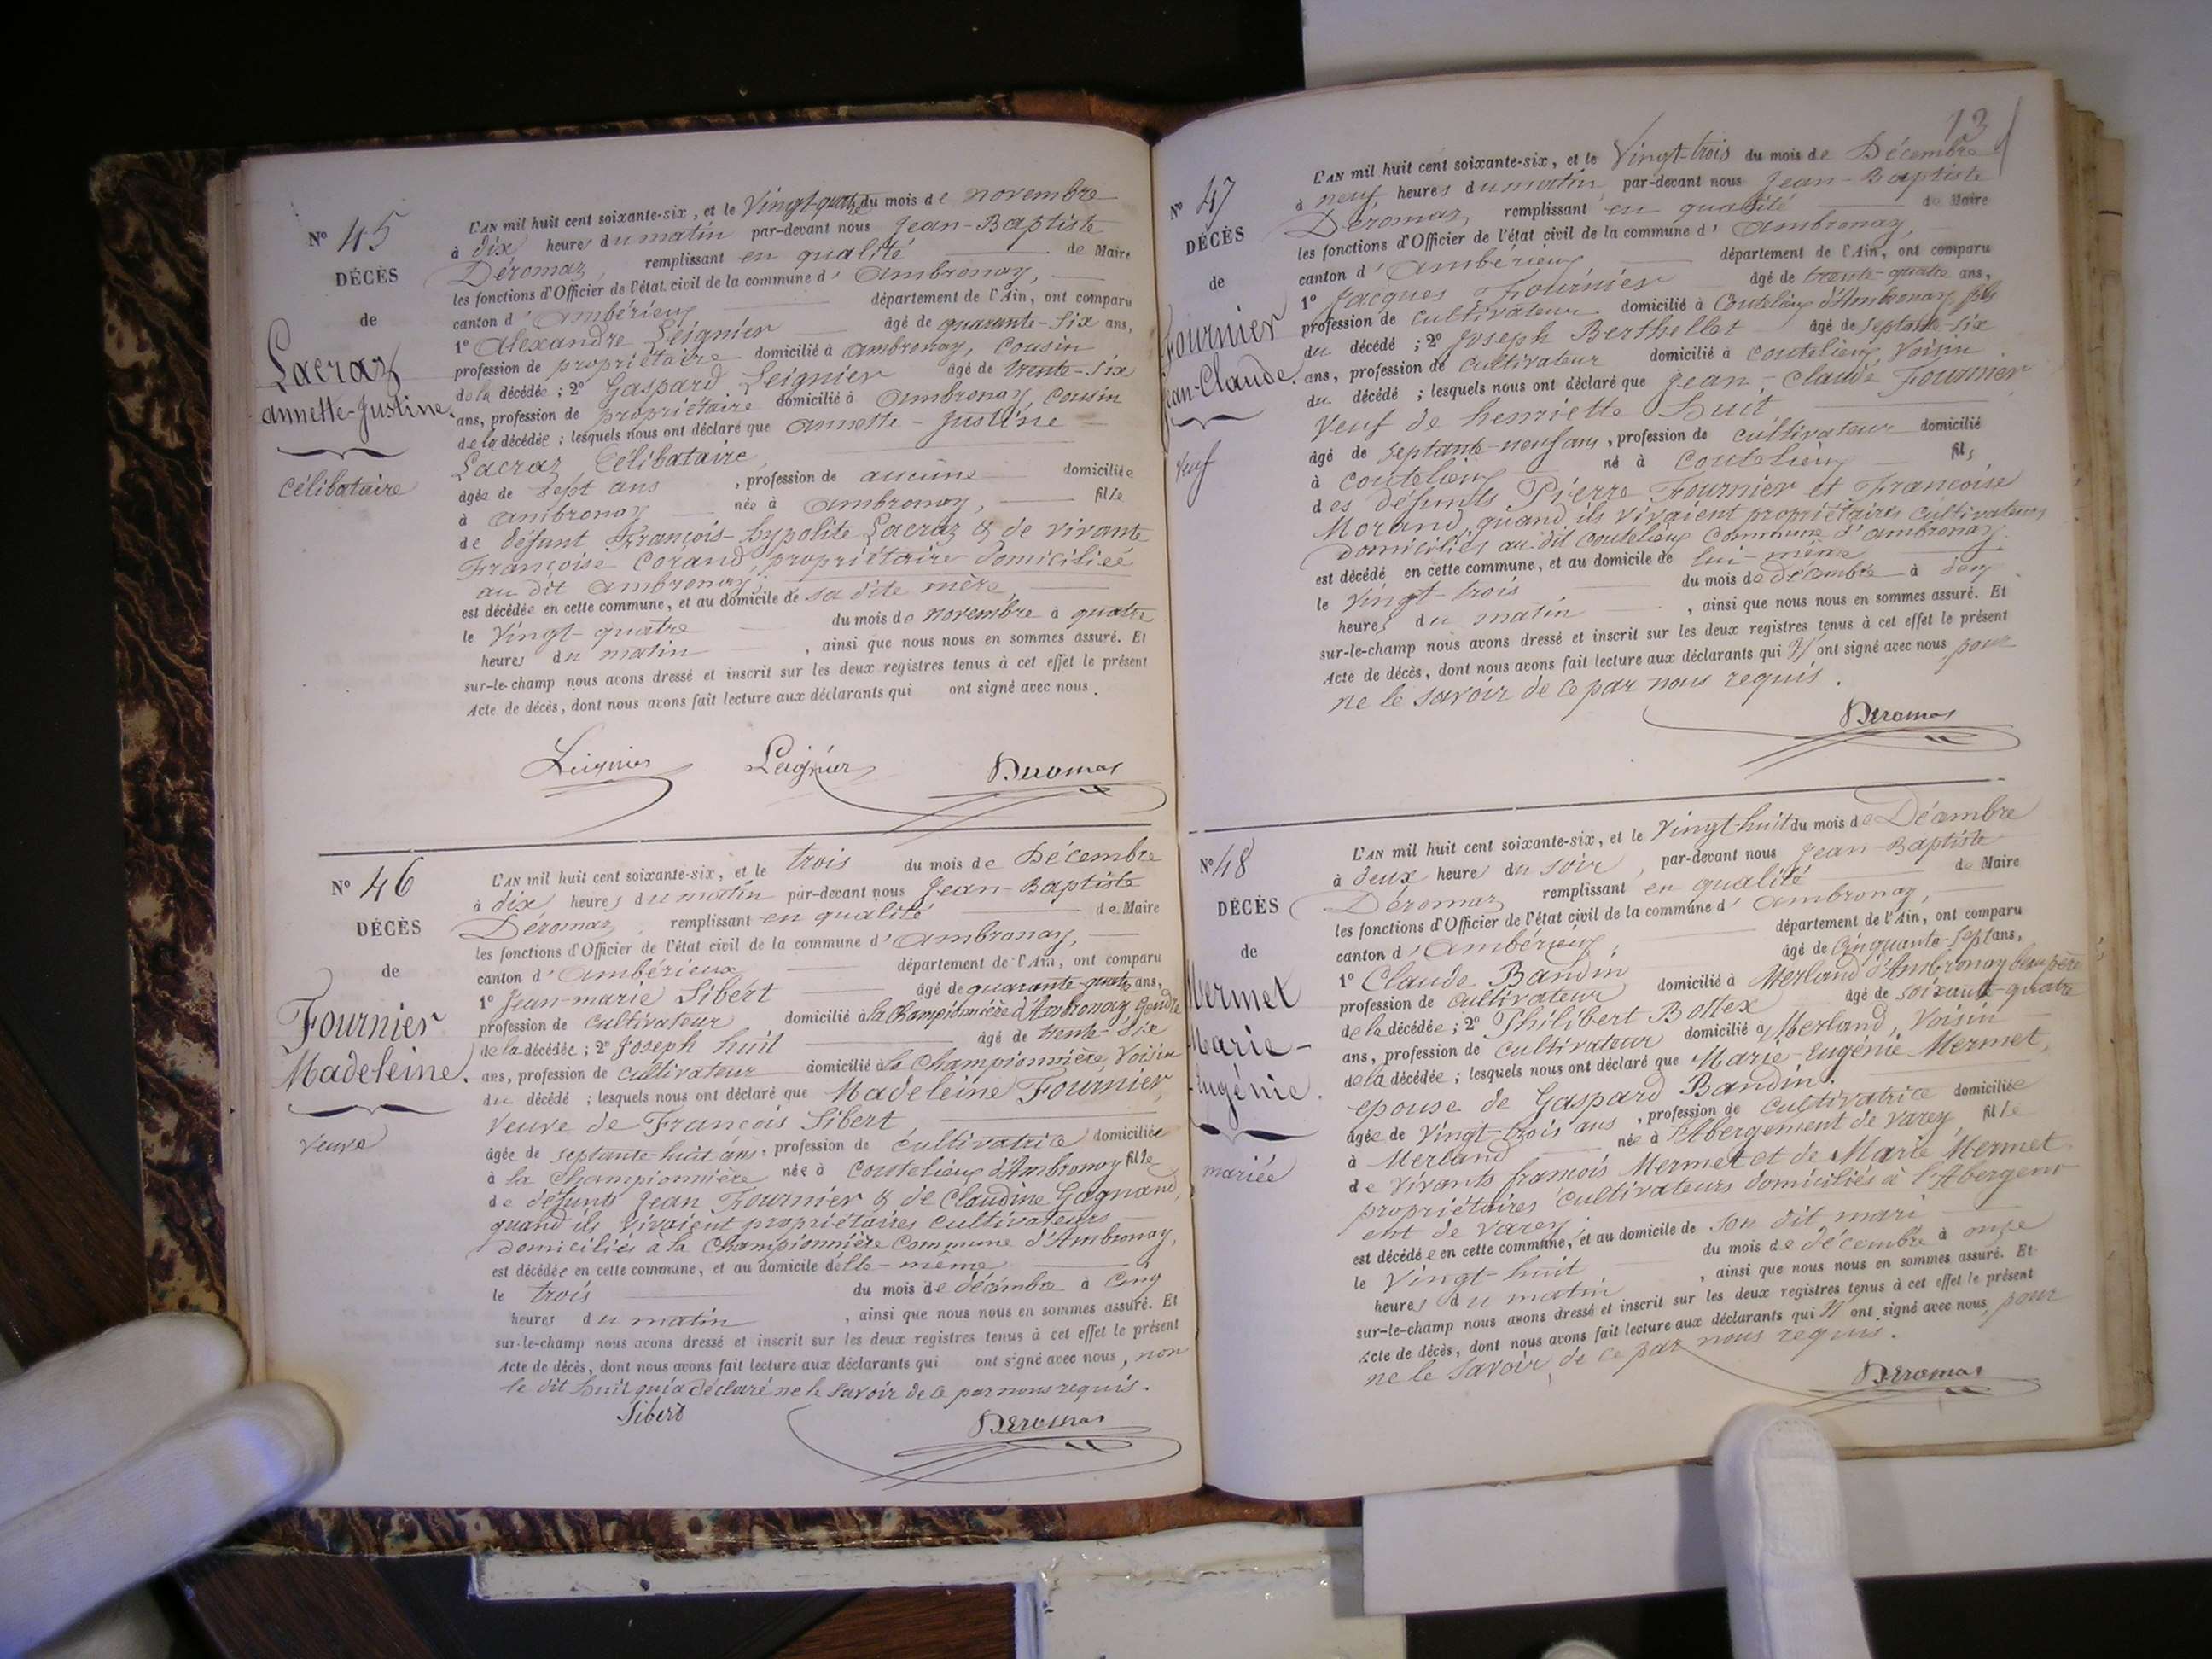 N° 45
DÉCÈS
de
Lacraz
annette-Justine.
célibataire
L'AN mil huit cent soixante-six, et le Vingt-quatre du mois de novembre
à dix heures du matin par-devant nous Jean-Baptiste
Déromaz, remplissant en qualité de Maire
les fonctions d'Officier de l'état civil de la commune d'Ambronay,
canton d'Ambérieux département de l'Ain, ont comparu
1° Alexandre Leignier âgé de quarante-six ans,
profession de propriétaire domicilié à ambronay, cousin
de la décédée ; 2° Gaspard Leignier âgé de trente-six
ans, profession de propriétaire domicilié à ambronay, cousin
de la décédée ; lesquels nous ont déclaré que annette-Justine
Lacraz, Célibataire,
âgée de sept ans, profession de aucune domiciliée
à ambronay née à ambronay, fille
de défunt François-hypolite Lacraz & de vivante
Françoise Corand, propriétaire domiciliée
au dit ambronay,
est décédée en cette commune, et au domicile de sa dite mère,
le Vingt-quatre du mois de novembre à quatre
heures du matin, ainsi que nous nous en sommes assuré. Et
sur-le-champ nous avons dressé et inscrit sur les deux registres tenus à cet effet le présent
Acte de décès, dont nous avons fait lecture aux déclarants qui ont signé avec nous.
Leignier Leignier Deromas
N° 46
DÉCÈS
de
Fournier
Madeleine.
veuve
L'AN mil huit cent soixante-six, et le trois du mois de Décembre
à dix heures du matin par-devant nous Jean-Baptiste
Déromaz, remplissant en qualité de Maire
les fonctions d'Officier de l'état civil de la commune d'Ambronay,
canton d'Ambérieux département de l'Ain, ont comparu
1° Jean-marie Sibert âgé de quarante-quatre ans,
profession de cultivateur domicilié à la Championnière d'Ambronay, Gendre
de la décédée ; 2° Joseph huit âgé de trente-six
ans, profession de cultivateur domicilié à la Championnière, Voisin
du décédé ; lesquels nous ont déclaré que Madeleine Fournier,
Veuve de François Sibert
âgée de septante-huit ans, profession de cultivatrice domiciliée
à la Championnière née à Coutelieux d'Ambronay fille
de défunts Jean Fournier & de Claudine Gagnand,
quand ils vivaient propriétaires cultivateurs
domiciliés à la Championnière Commune d'Ambronay,
est décédée en cette commune, et au domicile d'elle-même
le trois du mois de décembre à Cinq
heures du matin, ainsi que nous nous en sommes assuré. Et
sur-le-champ nous avons dressé et inscrit sur les deux registres tenus à cet effet le présent
Acte de décès, dont nous avons fait lecture aux déclarants qui ont signé avec nous, non
le dit huit qui a déclaré ne le savoir de ce par nous requis.
Sibert Deromas
13
N° 47
DÉCÈS
de
Fournier
Jean-Claude.
Veuf
L'AN mil huit cent soixante-six, et le Vingt-trois du mois de Décembre
à neuf heures du matin par-devant nous Jean-Baptiste
Déromaz, remplissant en qualité de Maire
les fonctions d'Officier de l'état civil de la commune d'Ambronay,
canton d'Ambérieux département de l'Ain, ont comparu
1° Jacques Fournier âgé de trente-quatre ans,
profession de cultivateur domicilié à Coutelieux d'Ambronay, fils
du décédé ; 2° Joseph Berthellet âgé de septante-six
ans, profession de cultivateur domicilié à coutelieux, Voisin
du décédé ; lesquels nous ont déclaré que Jean-Claude Fournier
Veuf de henriette huit
âgé de septante-neuf ans, profession de cultivateur domicilié
à coutelieux né à Coutelieux fils
des défunts Pierre Fournier et Françoise
Morand, quand ils vivaient propriétaires cultivateurs
domiciliés au dit Coutelieux Commune d'ambronay.
est décédé en cette commune, et au domicile de lui-même
le Vingt-trois du mois de décembre à deux
heures du matin, ainsi que nous nous en sommes assuré. Et
sur-le-champ nous avons dressé et inscrit sur les deux registres tenus à cet effet le présent
Acte de décès, dont nous avons fait lecture aux déclarants qui n'ont signé avec nous pour
ne le savoir de ce par nous requis.
Deromas
N° 48
DÉCÈS
de
Mermet
Marie-
Eugénie.
mariée
L'AN mil huit cent soixante-six, et le Vingt-huit du mois de Décembre
à deux heures du soir, par-devant nous Jean-Baptiste
Déromaz remplissant en qualité de Maire
les fonctions d'Officier de l'état civil de la commune d'Ambronay,
canton d'Ambérieux, département de l'Ain, ont comparu
1° Claude Bandin âgé de Cinquante-sept ans,
profession de cultivateur domicilié à Merland d'Ambronay beau père
de la décédée ; 2° Philibert Bottex âgé de soixante-quatre
ans, profession de cultivateur domicilié à Merland, Voisin
de la décédée ; lesquels nous ont déclaré que Marie-Eugénie Mermet,
epouse de Gaspard Bandin.
âgée de Vingt-trois ans, profession de Cultivatrice domiciliée
à Merland née à l'Abergement de Varey fille
de Vivants françois Mermet et de Marie Mermet
propriétaires cultivateurs domiciliés à l'Abergem
ent de Varey.
est décédée en cette commune, et au domicile de son dit mari
le Vingt-huit du mois de décembre à onze
heures du matin, ainsi que nous nous en sommes assuré. Et
sur-le-champ nous avons dressé et inscrit sur les deux registres tenus à cet effet le présent
Acte de décès, dont nous avons fait lecture aux déclarants qui n'ont signé avec nous, pour
ne le savoir de ce par nous requis.
Deromas